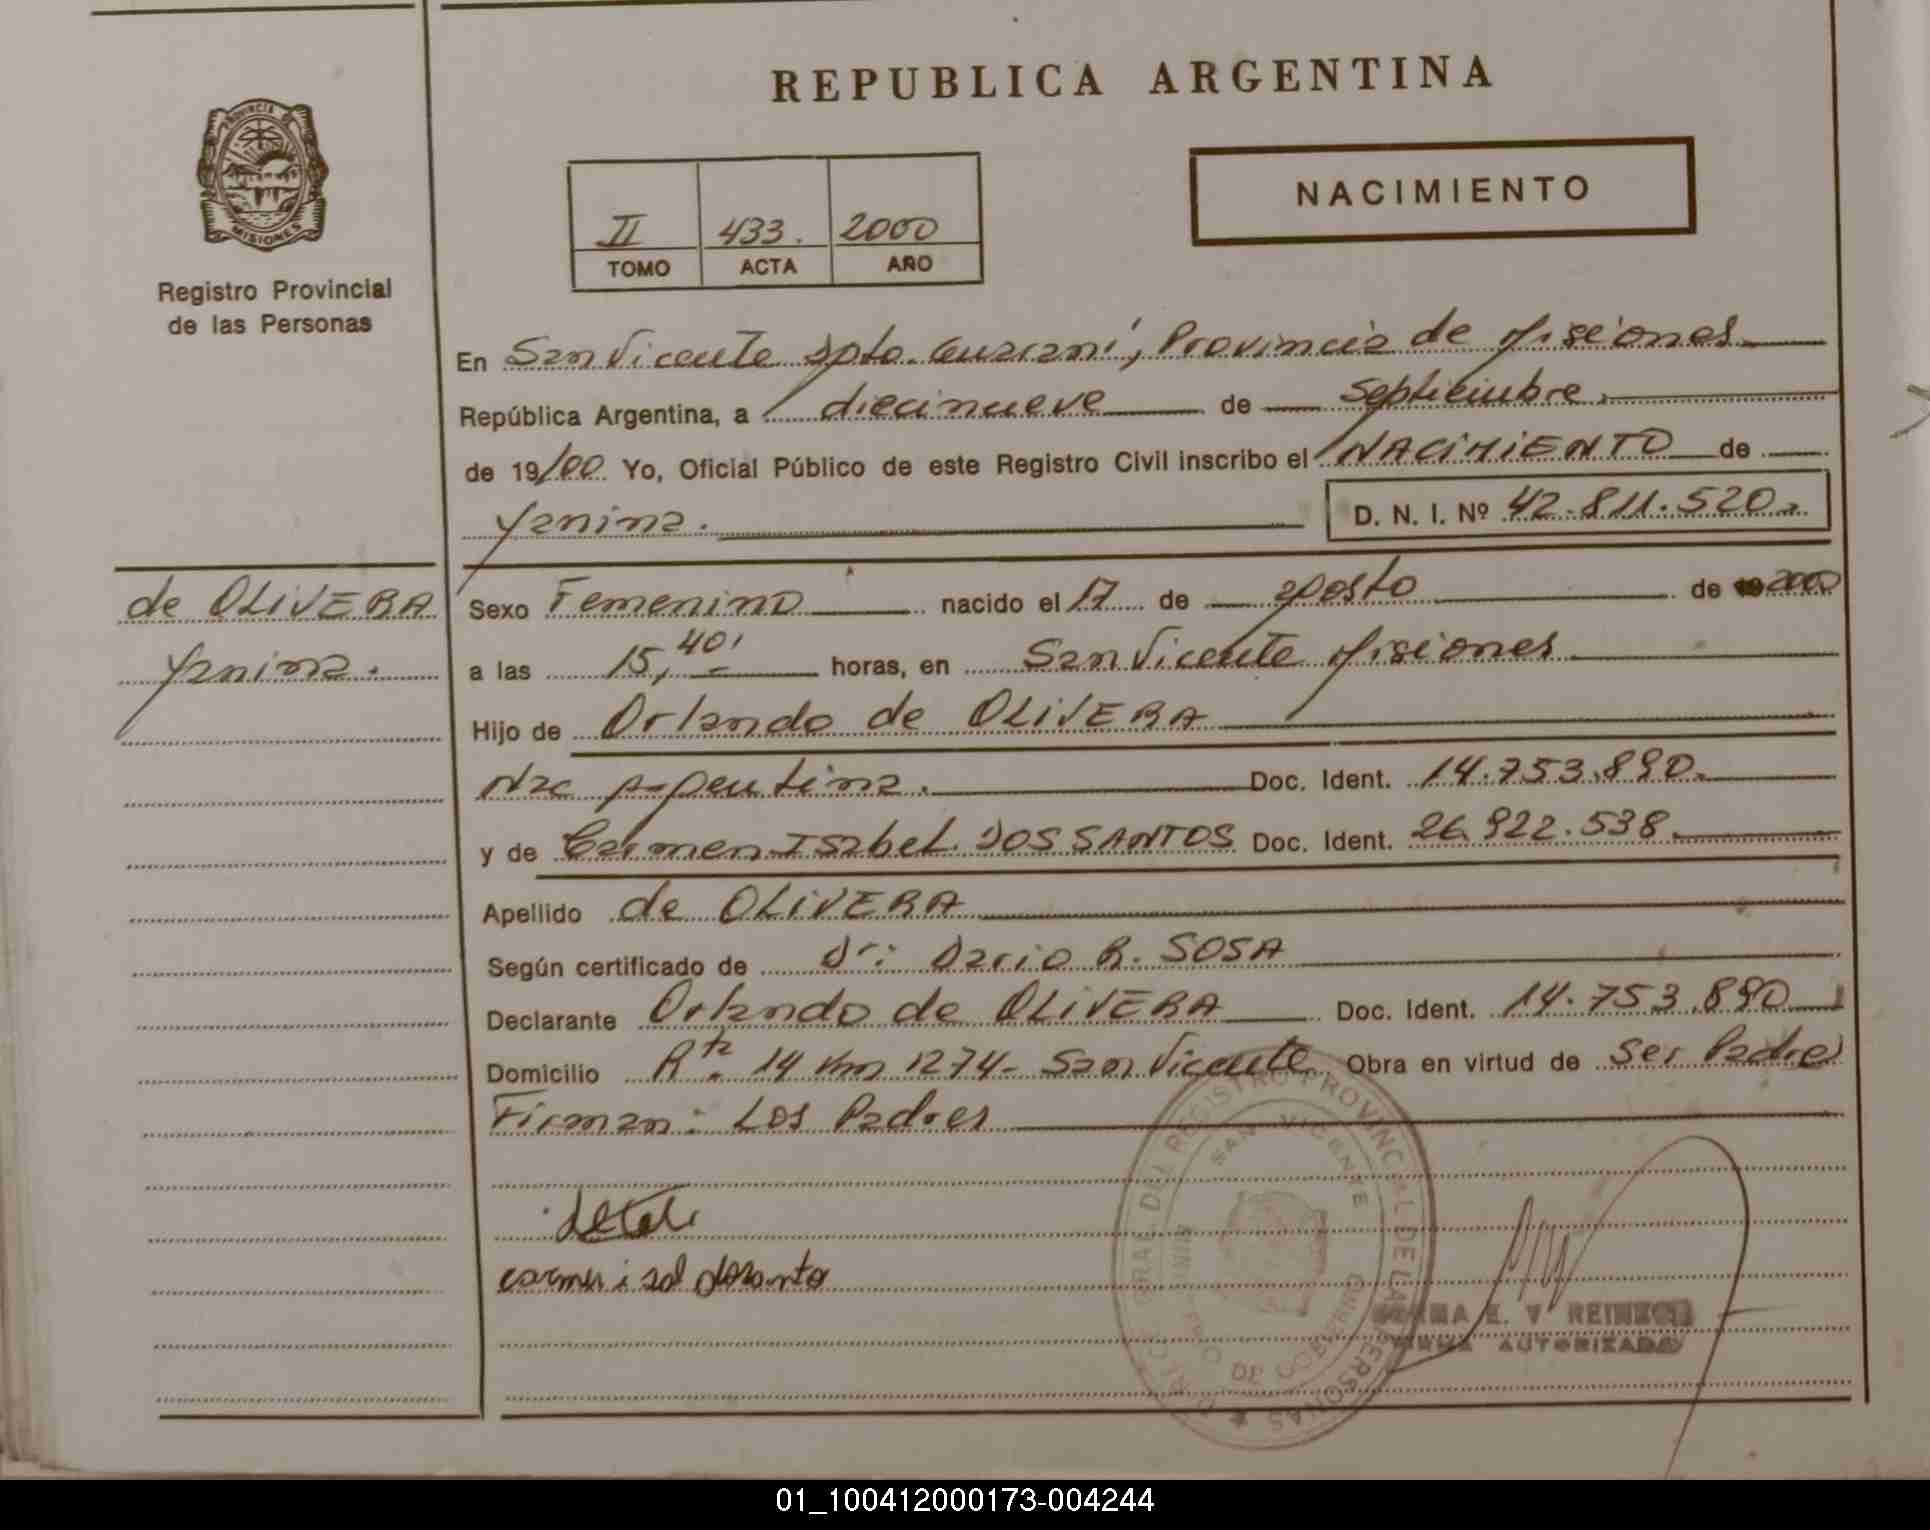 REPUBLICA ARGENTINA
PROVINCIA DE
MISIONES
Registro Provincial
de las Personas
II 433. 2000
TOMO ACTA AÑO
NACIMIENTO
En San Vicente Dpto. Guaraní, Provincia de Misiones
República Argentina, a diecinueve de Septiembre
de 19/00 Yo, Oficial Público de este Registro Civil inscribo el NACIMIENTO de
Yanina. D. N. I. Nº 42.811.520
de OLIVERA
Yanina.
Sexo Femenino nacido el 17 de agosto de 2000
a las 15,40' horas, en San Vicente Misiones
Hijo de Orlando de OLIVERA
Nac Argentina. Doc. Ident. 14.753.890.
y de Carmen Isabel DOS SANTOS Doc. Ident. 26.922.538.
Apellido de OLIVERA
Según certificado de Dr: Dario R. SOSA
Declarante Orlando de OLIVERA Doc. Ident. 14.753.890
Domicilio Rta. 14 km 1274- San Vicente Obra en virtud de Ser Padre
Firman: Los Padres
REGISTRO PROVINCIAL DE LAS PERSONAS
SAN VICENTE
DE GOBIERNO
E. V. 
FIRMA AUTORIZADA
01_100412000173-004244